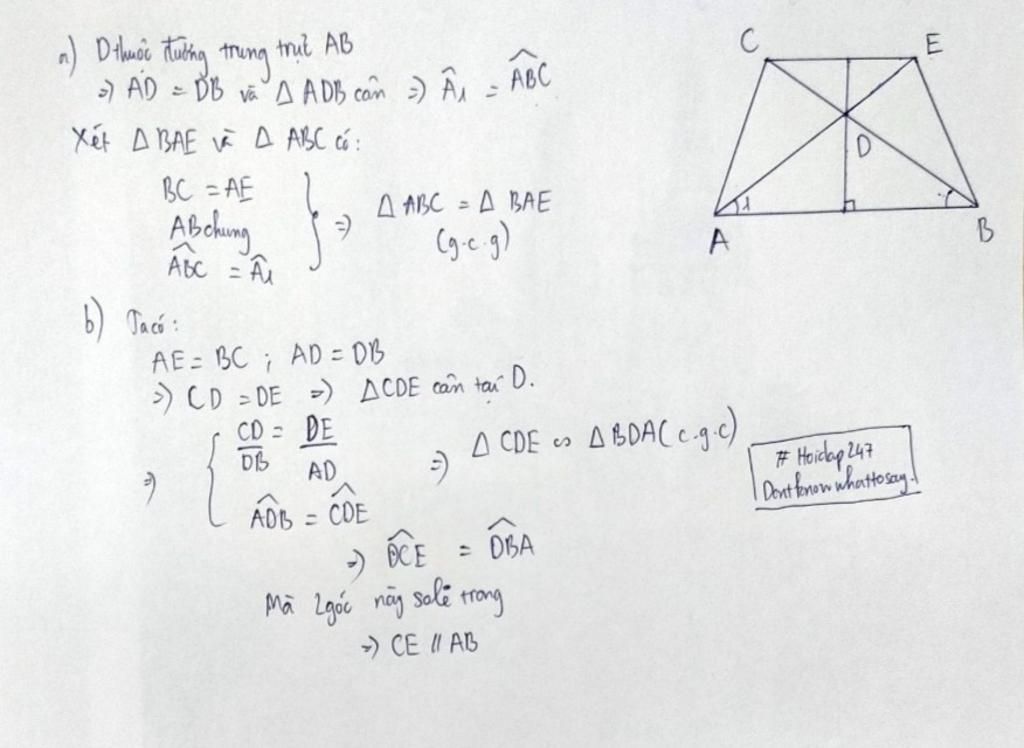 a) D thuộc đường trung trực AB
=> AD = DB và Δ ADB cân => Â₁ = \widehat{ABC}
Xét Δ BAE và Δ ABC có:
BC = AE
AB chung
\widehat{ABC} = Â₁
=> Δ ABC = Δ BAE
(g.c.g)
C
E
D
1
A
B
b) Ta có:
AE = BC ; AD = DB
=> CD = DE => ΔCDE cân tại D.
=> { CD/DB = DE/AD
\widehat{ADB} = \widehat{CDE}
=> Δ CDE ∽ Δ BDA (c.g.c)
=> \widehat{DCE} = \widehat{DBA}
Mà 2 góc này sole trong
=> CE // AB
# Hoidap247
Dontknowwhattosay.